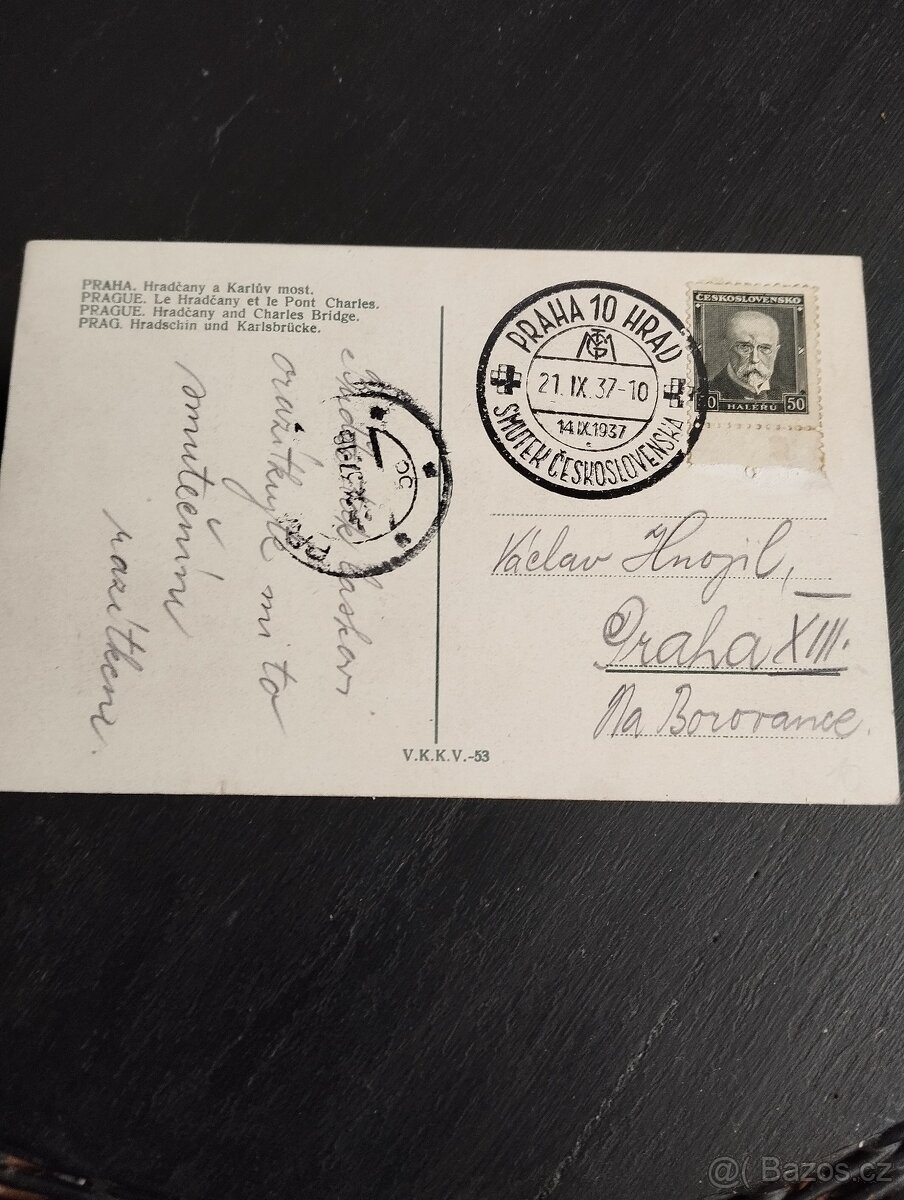 PRAHA. Hradčany a Karlův most.
PRAGUE. Le Hradčany et le Pont Charles.
PRAGUE. Hradčany and Charles Bridge.
PRAG. Hradschin und Karlsbrücke.
laskavi
orazítkujte mi to
smutečním
razítkem.
V.K.K.V.-53
PRAHA 10 HRAD
21.IX.37-10
14.IX.1937
SMUTEK ČESKOSLOVENSKA
ČESKOSLOVENSKO
HALÉŘŮ 50
Václav Hnojil,
Praha XIII.
Na Borovance.
@( Bazos.cz